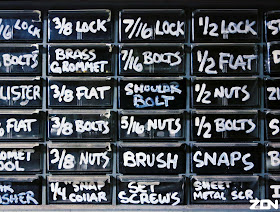 /16 LOCK 3/8 LOCK 7/16 LOCK 1/2 LOCK
BOLTS BRASS GROMMET 7/16 BOLTS 1/2 FLAT
LISTER 3/8 FLAT SHOULDR BOLT 1/2 NUTS
FLAT 3/8 BOLTS 5/16 NUTS 1/2 BOLTS
OMET OOL 3/8 NUTS BRUSH SNAPS
SHER 1/4 SNAP COLLAR SET SCREWS SHEET METAL SCR
ZEN